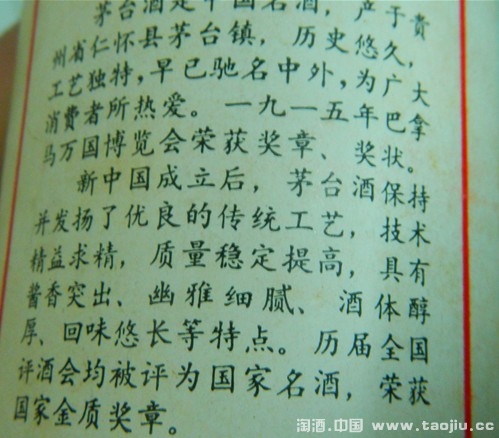 茅台酒是中国名酒，产于贵
州省仁怀县茅台镇，历史悠久，
工艺独特，早已驰名中外，为广大
消费者所热爱。一九一五年巴拿
马万国博览会荣获奖章、奖状。
新中国成立后，茅台酒保持
并发扬了优良的传统工艺，技术
精益求精，质量稳定提高，具有
酱香突出、幽雅细腻、酒体醇
厚、回味悠长等特点。历届全国
评酒会均被评为国家名酒，荣获
国家金质奖章。
淘酒.中国 www.taojiu.cc